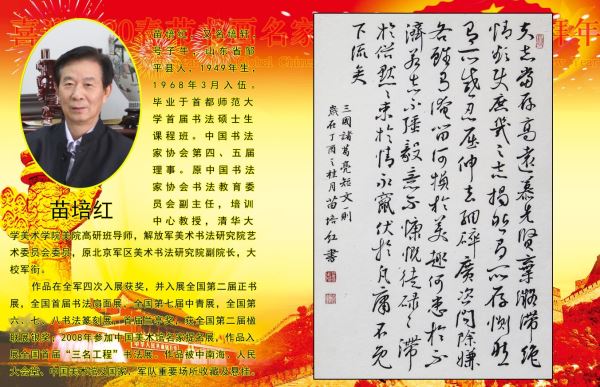 喜迎
春节
名家
拜年
苗培红，又名培轩，
号子年，山东省邹
平县人，1949年生，
1968年3月入伍。
毕业于首都师范大
学首届书法硕士生
课程班。中国书法
家协会第四、五届
理事。原中国书法
家协会书法教育委
员会副主任，培训
中心教授，清华大
学美术学院美院高研班导师，解放军美术书法研究院艺
术委员会委员，原北京军区美术书法研究院副院长，大
校军衔。
作品在全军四次入展获奖，并入展全国第二届正书
展，全国首届书法扇面展、全国第七届中青展，全国第
六、七、八书法篆刻展，首届兰亭奖，获全国第二届楹
联展银奖，2008年参加中国美术馆名家提名展，作品入
展全国首届“三名工程”书法展。作品被中南海、人民
大会堂、中国美术馆及国家、军队重要场所收藏及悬挂。
苗培红
夫志當存高遠慕先賢棄凝滯絕
情欲使庶幾之志揭然有所存惻然
有所感忍屈伸去細碎廣咨問除嫌
吝雖有淹留何損於美趣何患於不
濟若志不强毅意不慷慨徒碌碌滯
於俗默默束於情永竄伏於凡庸不免
下流矣
三國諸葛亮短文一則
歲在丁酉之桂月苗培红書